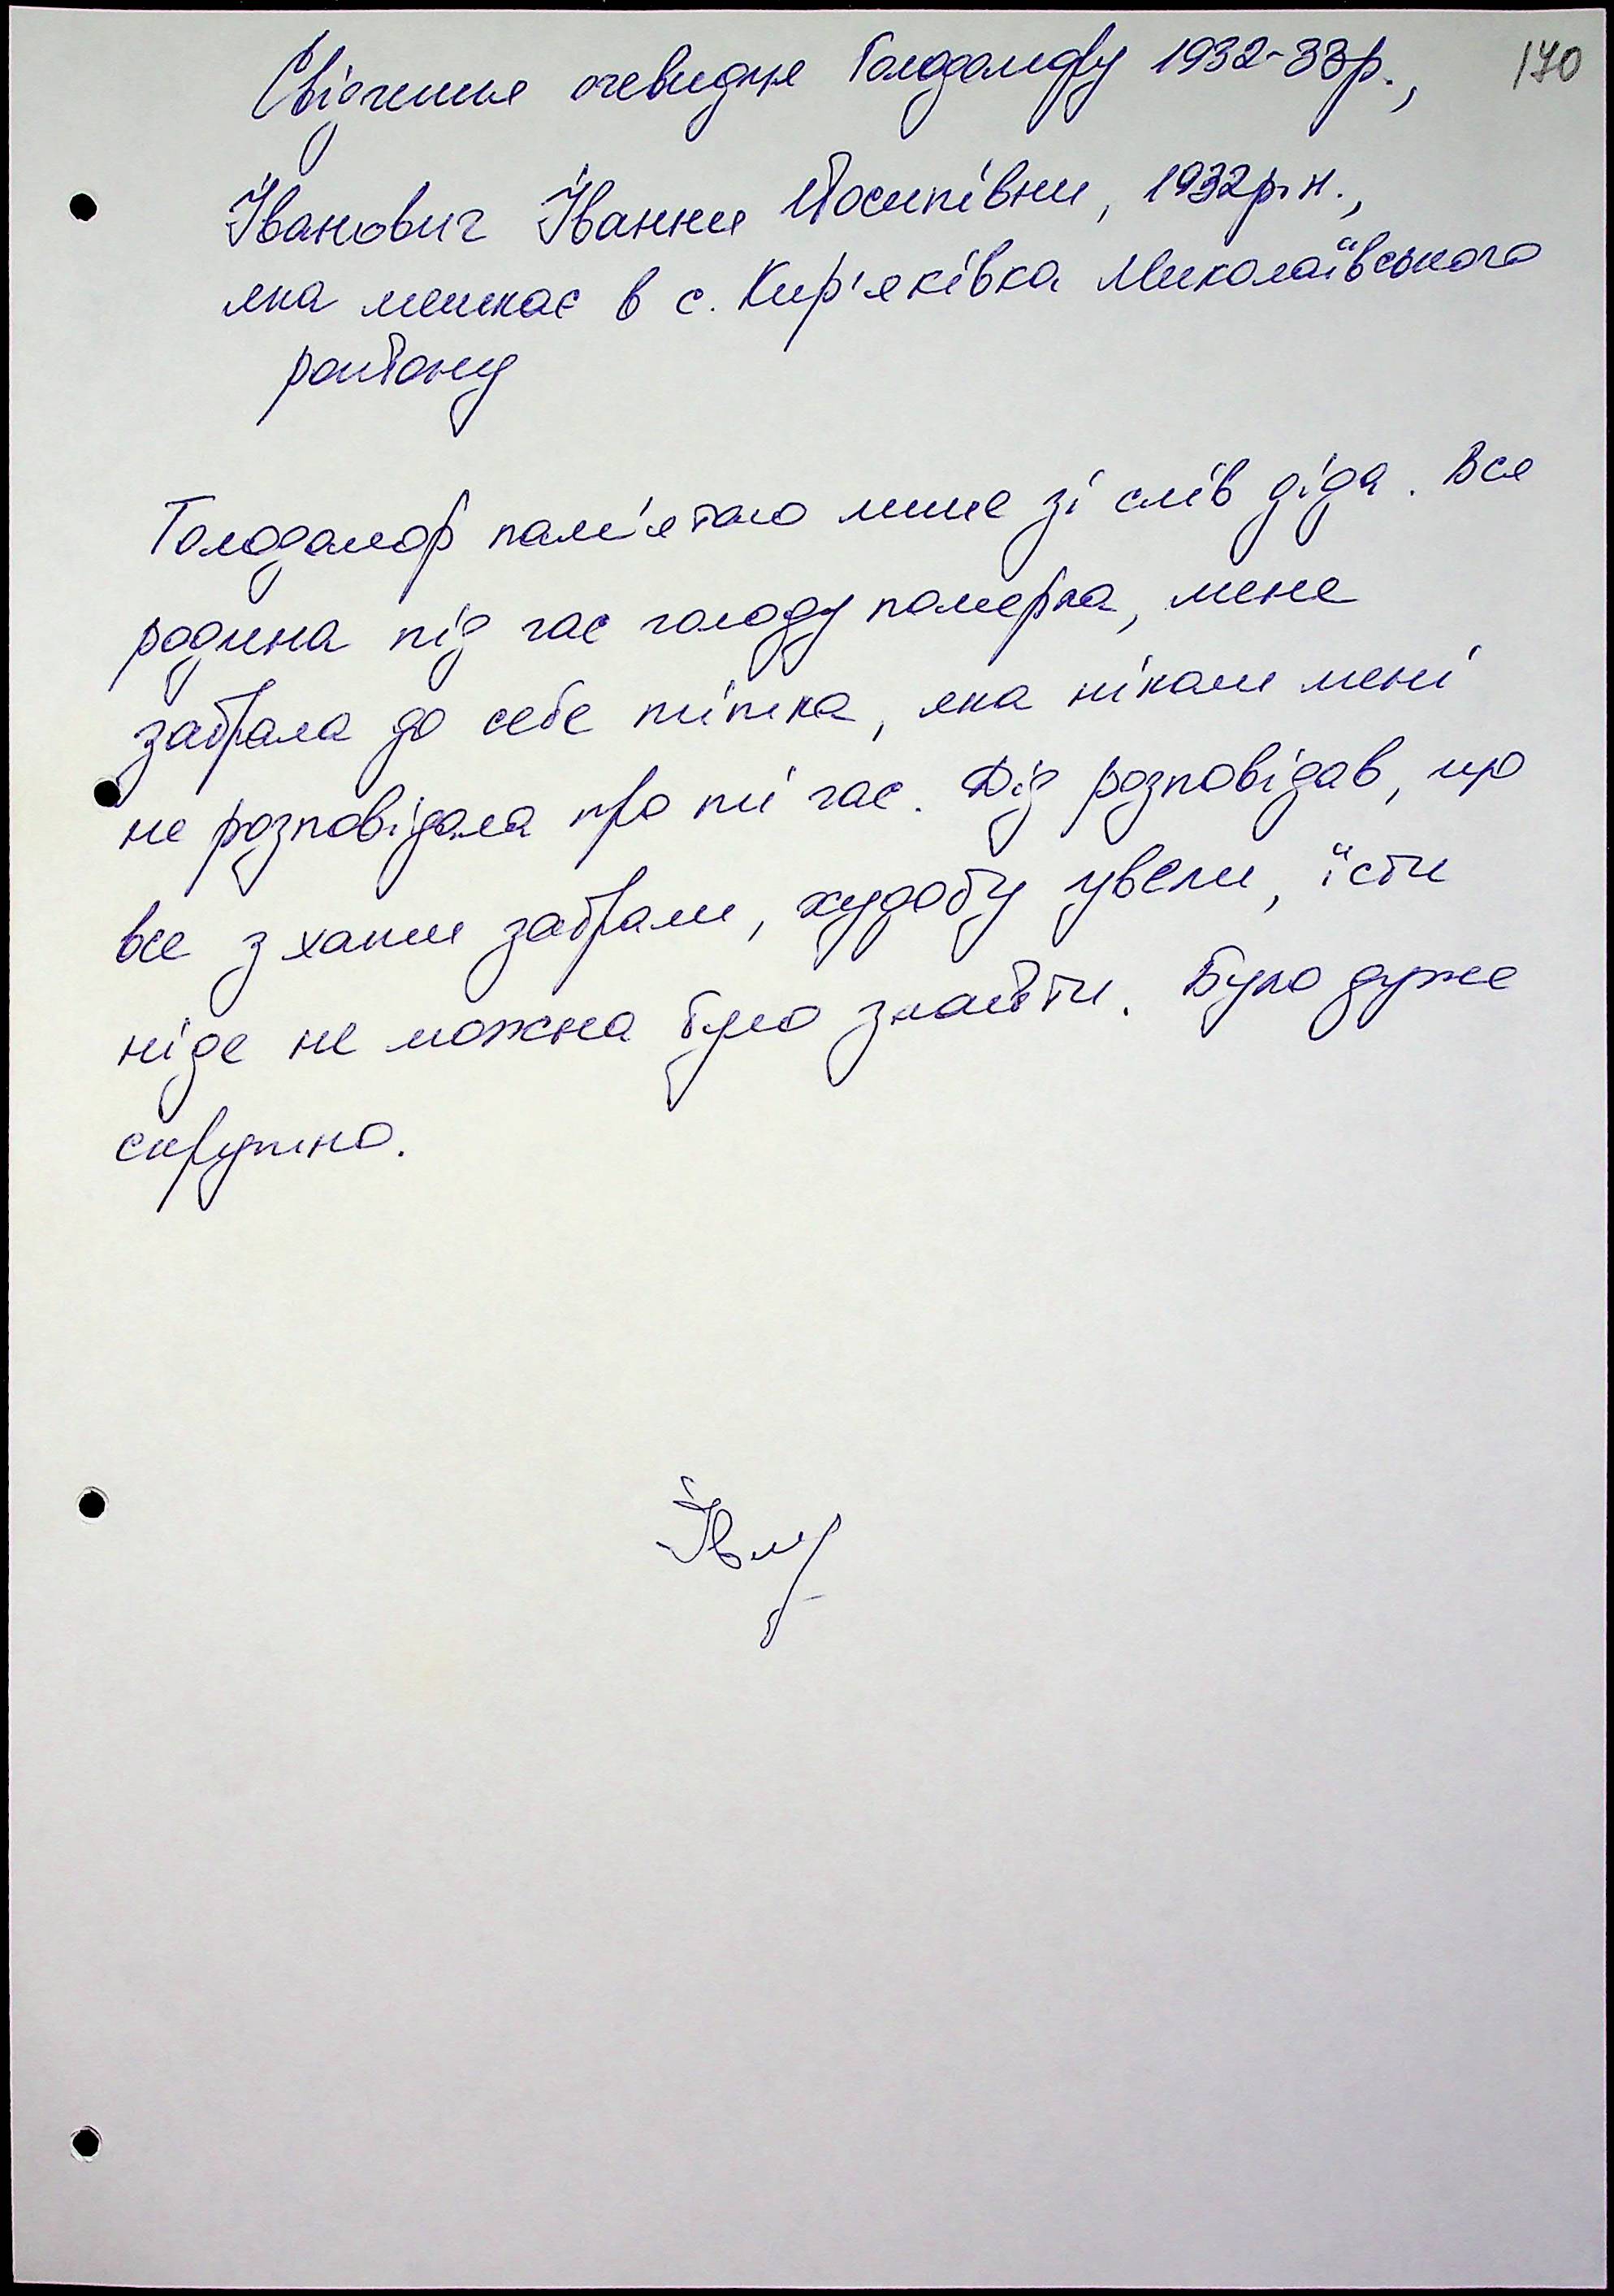 170
Свідчення очевидця Голодомору 1932-33р.,
Іванович Іванни Йосипівни, 1932р.н.,
яка мешкає в с. Кир'яківка Миколаївського
району
Голодомор пам'ятаю лише зі слів діда. Вся
родина під час голоду померла, мене
забрала до себе тітка, яка ніколи мені
не розповідала про ті час. Дід розповідав, що
все з хати забрали, худобу увели, їсти
ніде не можна було знайти. Було дуже
скрутно.